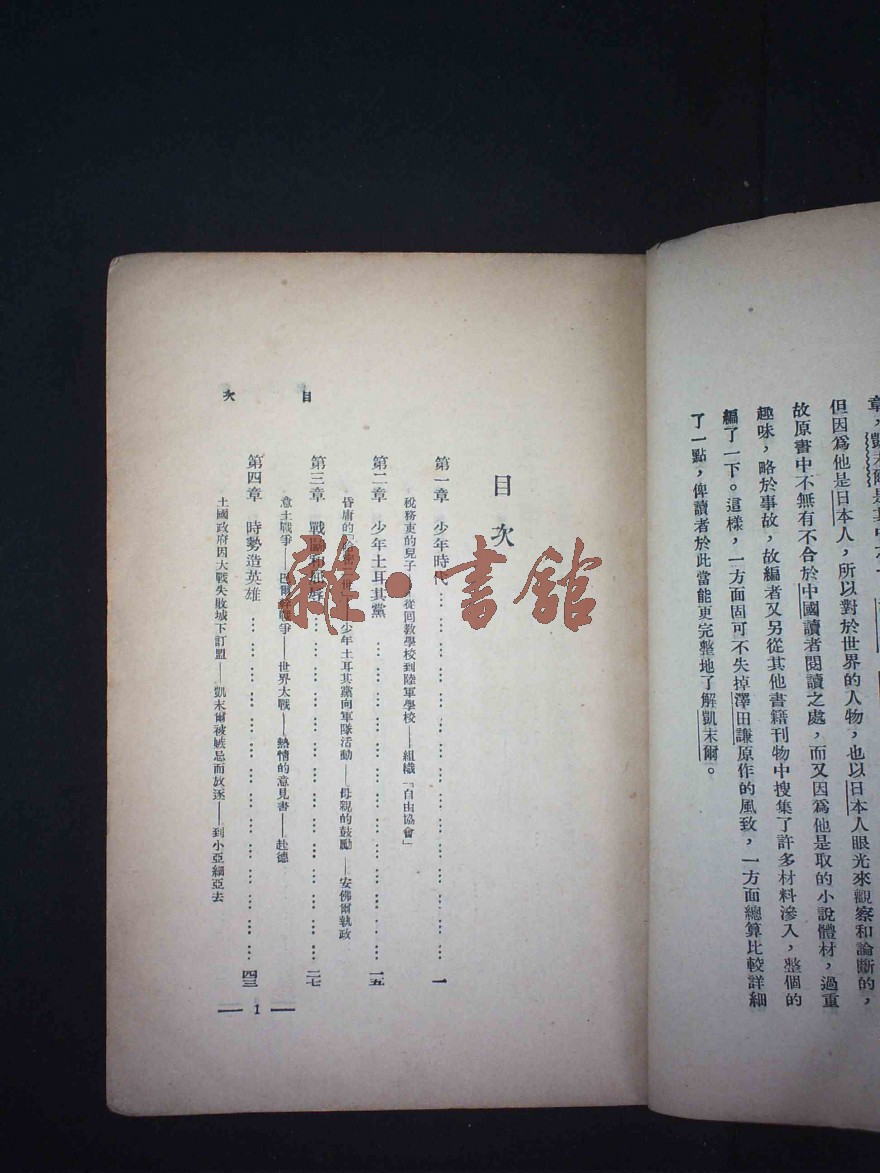 章，凱末爾是其中之一
但因爲他是日本人，所以對於世界的人物，也以日本人眼光來觀察和論斷的，
故原書中不無有不合於中國讀者閱讀之處，而又因爲他是取的小說體材，過重
趣味，略於事故，故編者又另從其他書籍刊物中搜集了許多材料滲入，整個的
編了一下。這樣，一方面固可不失掉澤田謙原作的風致，一方面總算比較詳細
了一點，俾讀者於此當能更完整地了解凱末爾。
目次
第一章 少年時代……一
稅務吏的兒子——從回教學校到陸軍學校——組織「自由協會」
第二章 少年土耳其黨……一五
昏庸的「哈 二世」——少年土耳其黨向軍隊活動——母親的鼓勵——安佛爾執政
第三章 戰 和 ……二七
意土戰爭——巴爾幹戰爭——世界大戰——熱情的意見書——赴德
第四章 時勢造英雄……四三
土國政府因大戰失敗城下訂盟——凱末爾被嫉忌而放逐——到小亞細亞去
目次
1
雜·書館